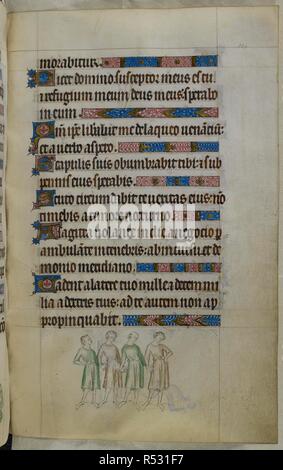 morabitur.
Dicet domino susceptor meus es tu
et refugium meum deus meus sperabo
in eum.
Quoniam ipse liberabit me de laqueo venantium
et a verbo aspero.
Scapulis suis obumbrabit tibi: et sub
pennis eius sperabis.
Scuto circumdabit te veritas eius: non
timebis a timore nocturno.
A sagitta volante in die a negocio p
ambulante in tenebris: ab incursu et de
monio meridiano.
Cadent a latere tuo mille et decem mi
lia a dextris tuis: ad te autem non ap
propinquabit.
alamy
R531F7